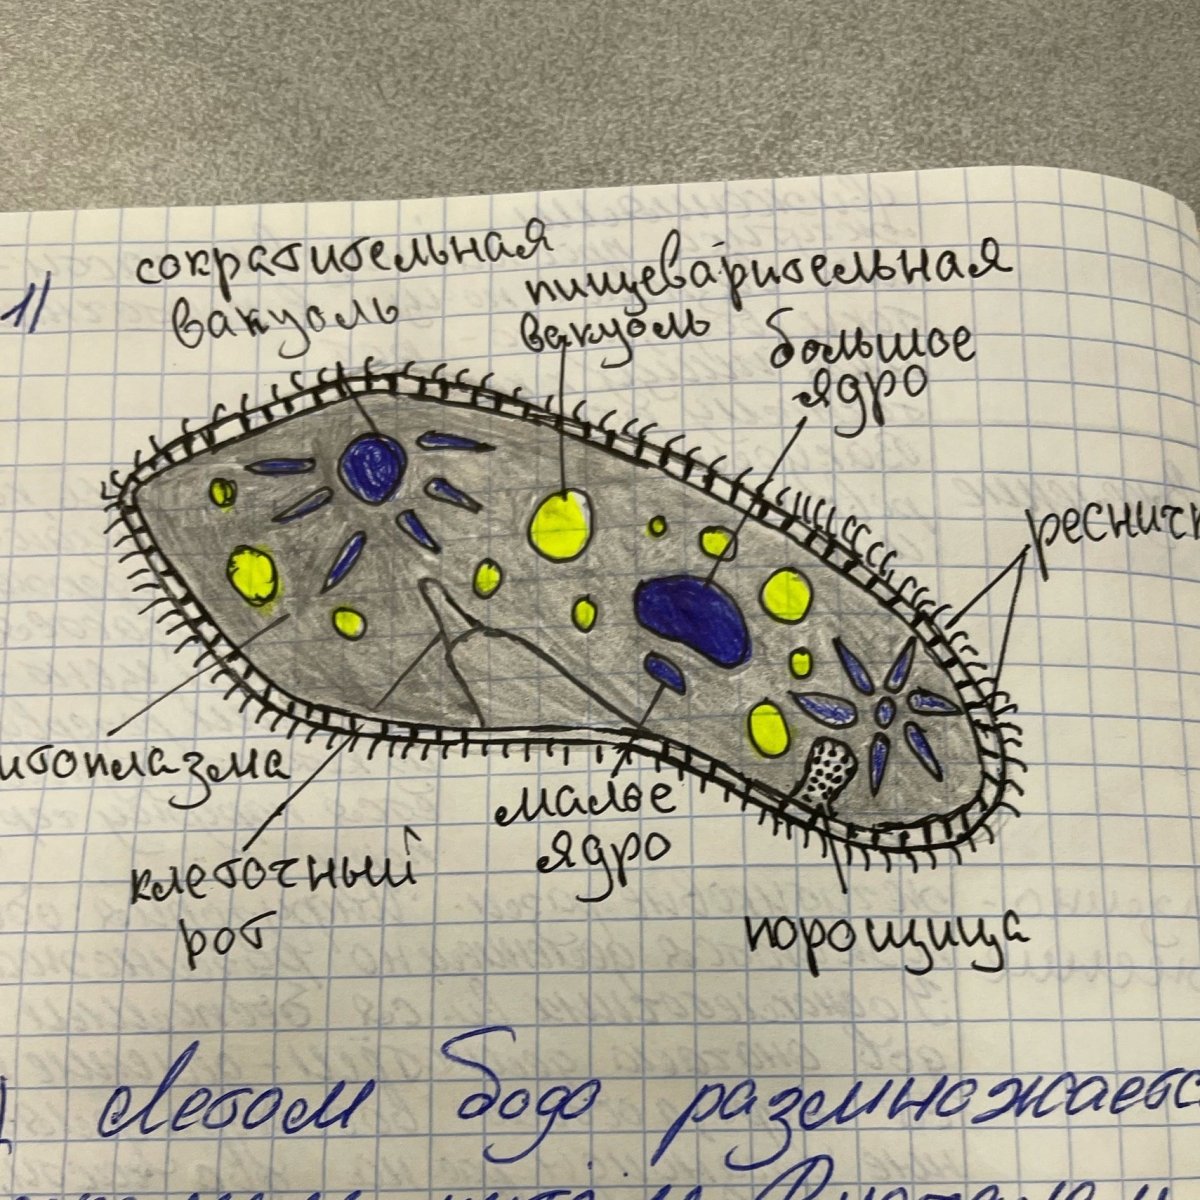 1)
сократительная
вакуоль
пищеварительная
вакуоль
большое
ядро
реснич
итоплазма
клеточный
рот
малое
ядро
порошица
Летом бодо размножаетс